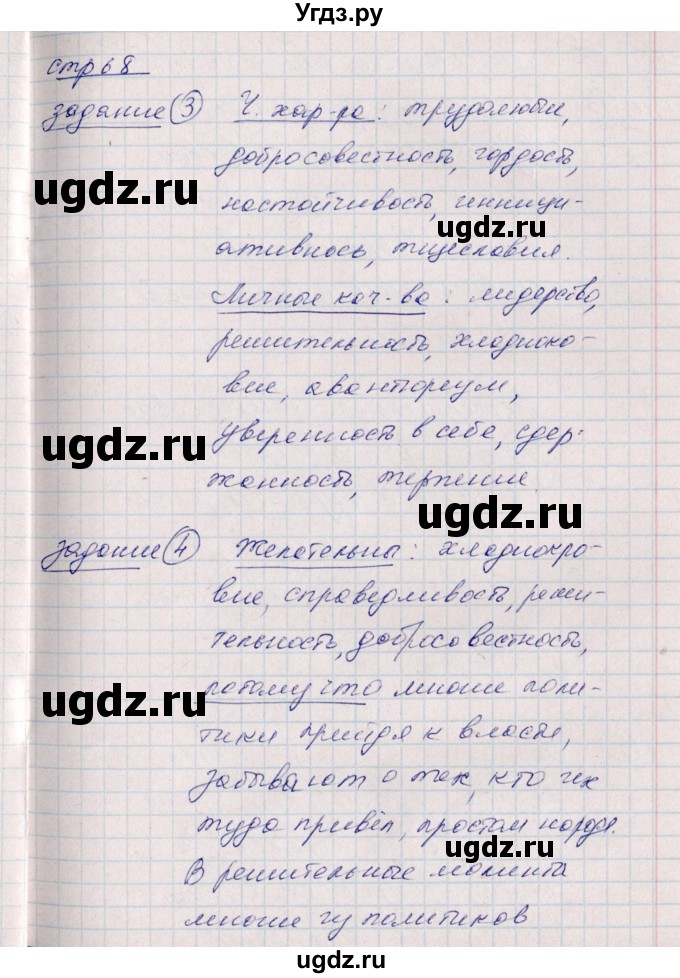 Угдз.ру
стр 68
задание 3 Ч. хар-ра: трудолюбие,
добросовестность, гордость,
ugdz.ru
настойчивость, иници-
ugdz.ru
ативнось, тщеславия.
Личные кач-ва: лидерство,
решительность, хладнок-
вие, авантюризм,
ugdz.ru
уверенность в себе, сдер-
жанность, терпение.
ugdz.ru
задание 4 Желательны: хладнокро-
вие, справедливость, реши-
тельность, добросовестность,
ugdz.ru
потому что многие поли-
тики прийдя к власти,
забывают о тех, кто их
туда привёл, простом народе.
ugdz.ru
В решительные момента
многие из политиков
ugdz.ru